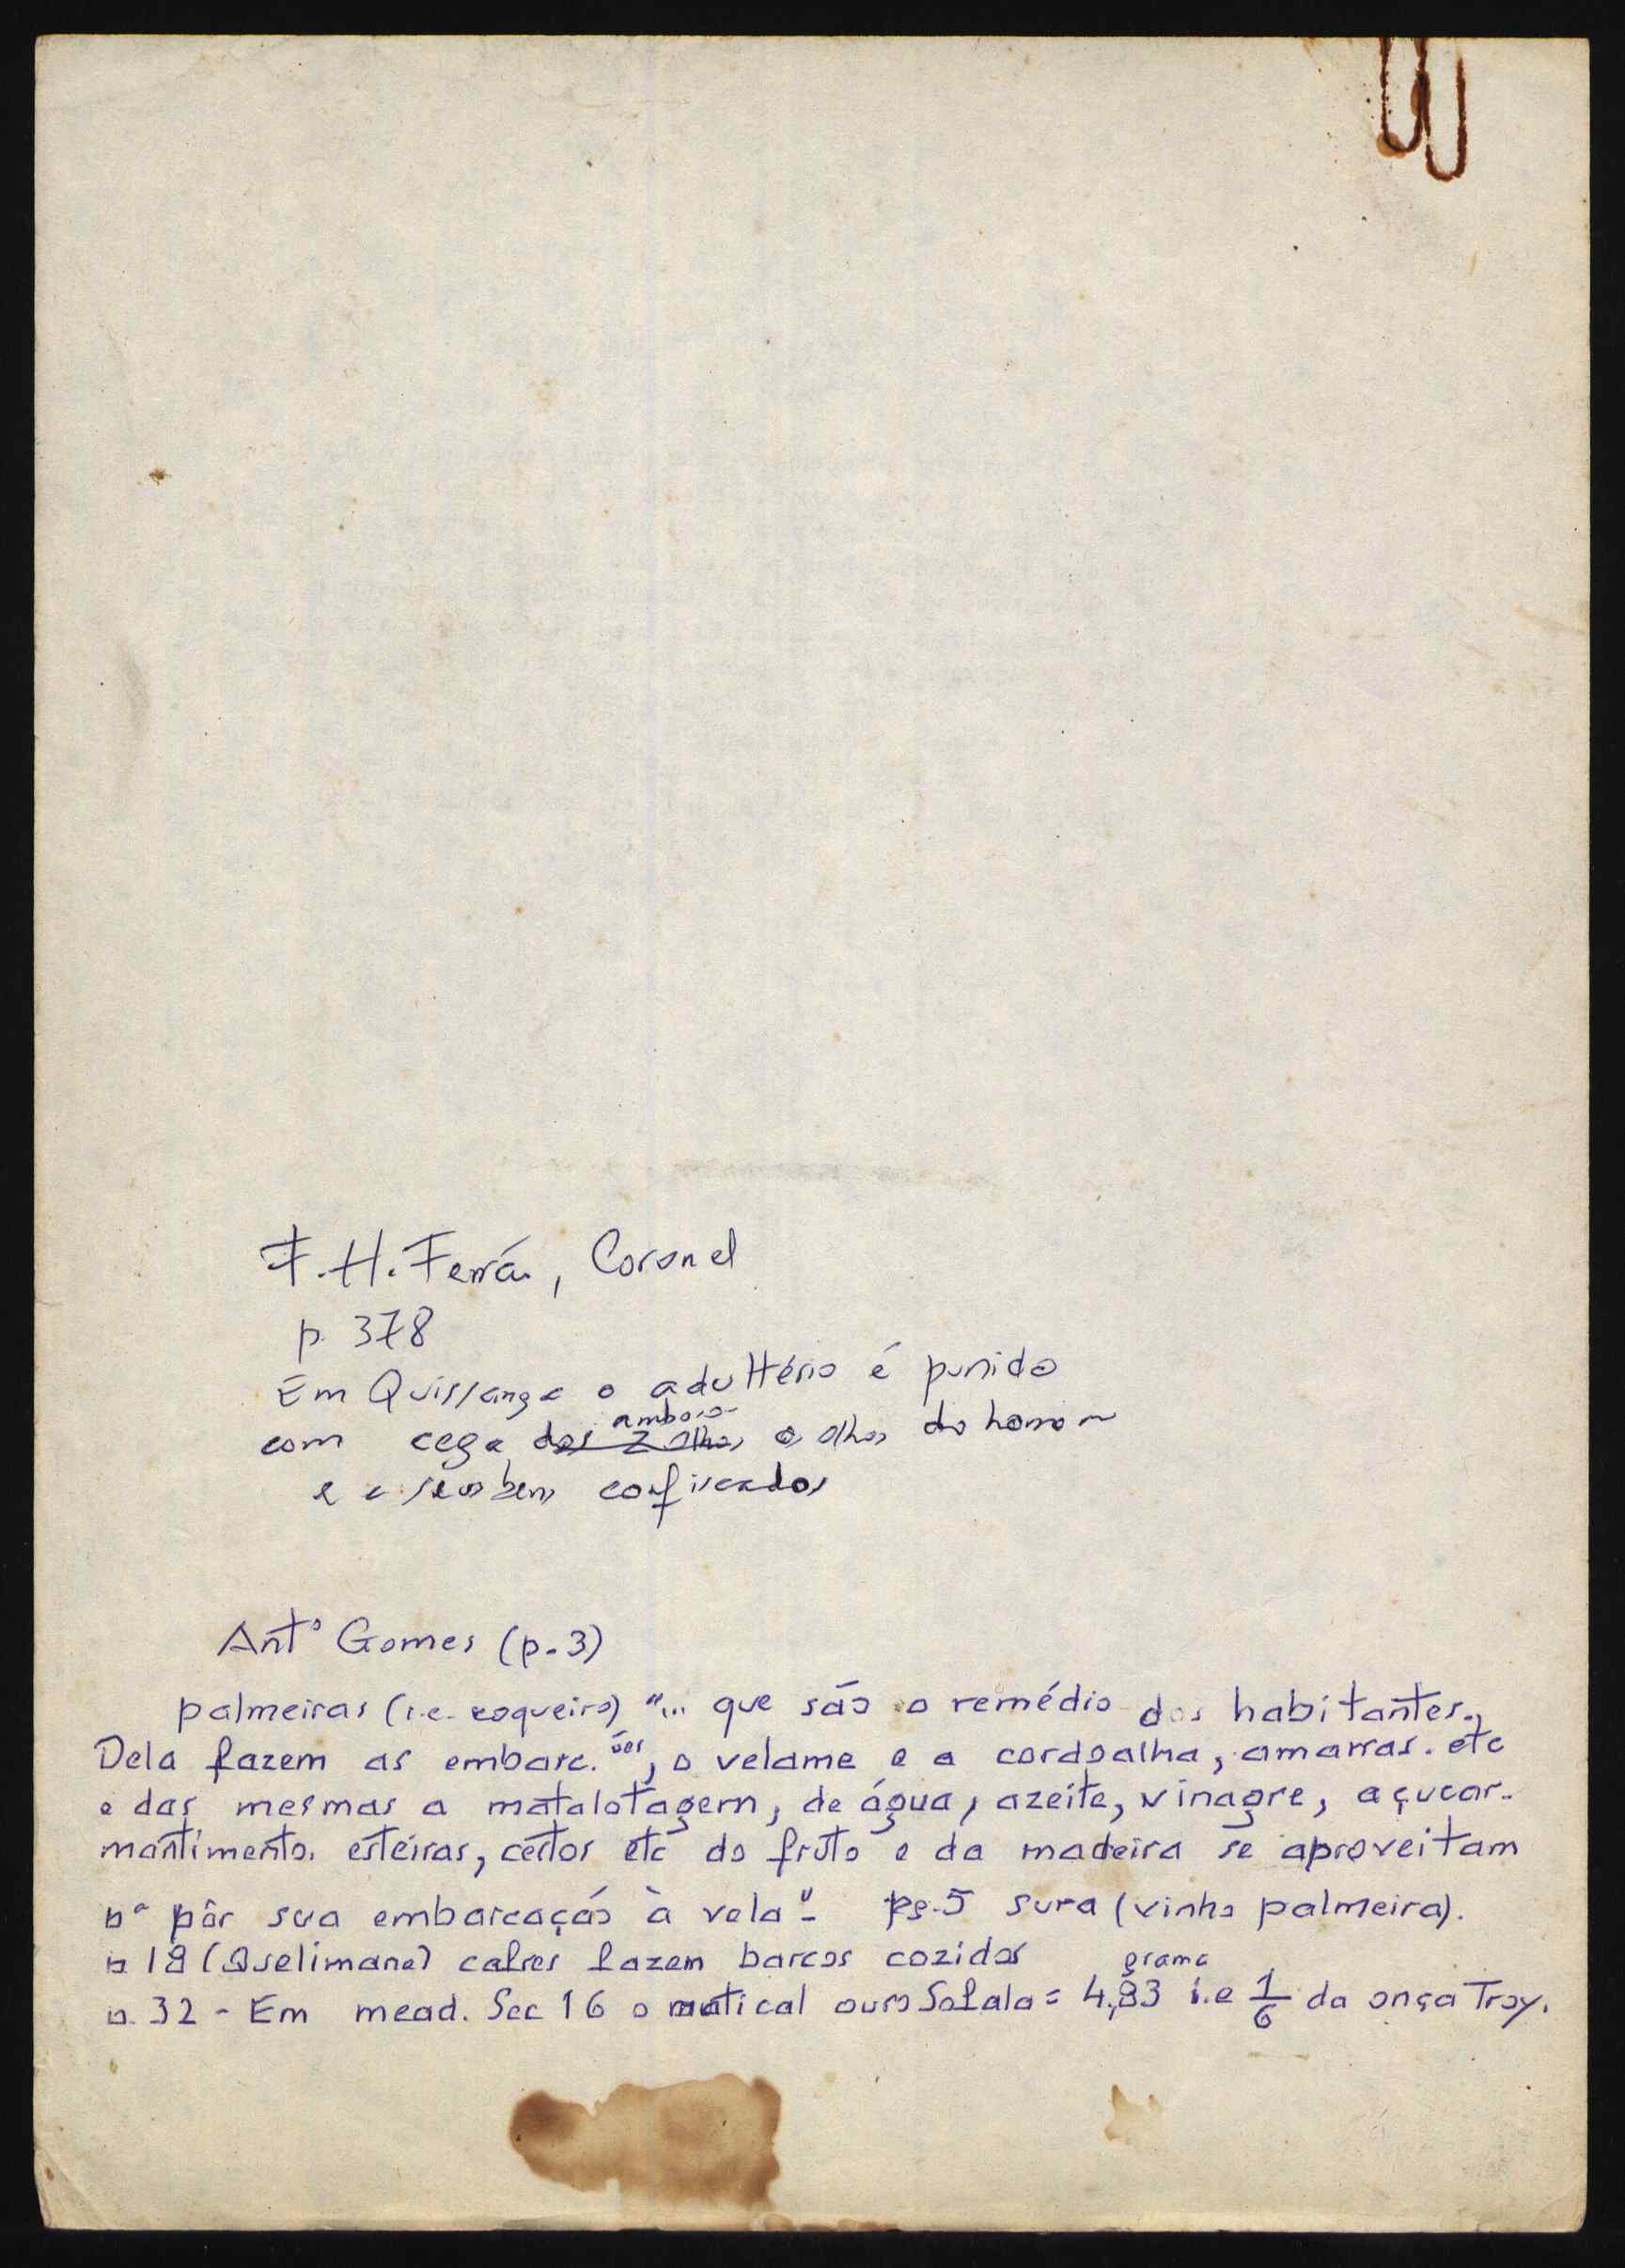 F.H. Ferrá, Coronel
p. 378
Em Quissanga o adultério é punido
ambos
com cega dos 2 olhos os olhos do homem
e seus bens confiscados
Antº Gomes (p. 3)
palmeiras (i.e. coqueiro) "... que são o remédio dos habitantes.
Dela fazem as embarc.ões, o velame e a cordoalha, amarras. etc
e das mesmas a matalotagem, de água, azeite, vinagre, açucar.
mantimento. esteiras, certos etc do fruto e da madeira se aproveitam
pª pôr sua embarcação à vela" - pg. 5 sura (vinho palmeira).
p. 18 (Quelimane) cafres fazem barcos cozidos
grama
p. 32 - Em mead. Sec 16 o matical ouro Sofala = 4,83 i.e 1/6 da onça Troy.